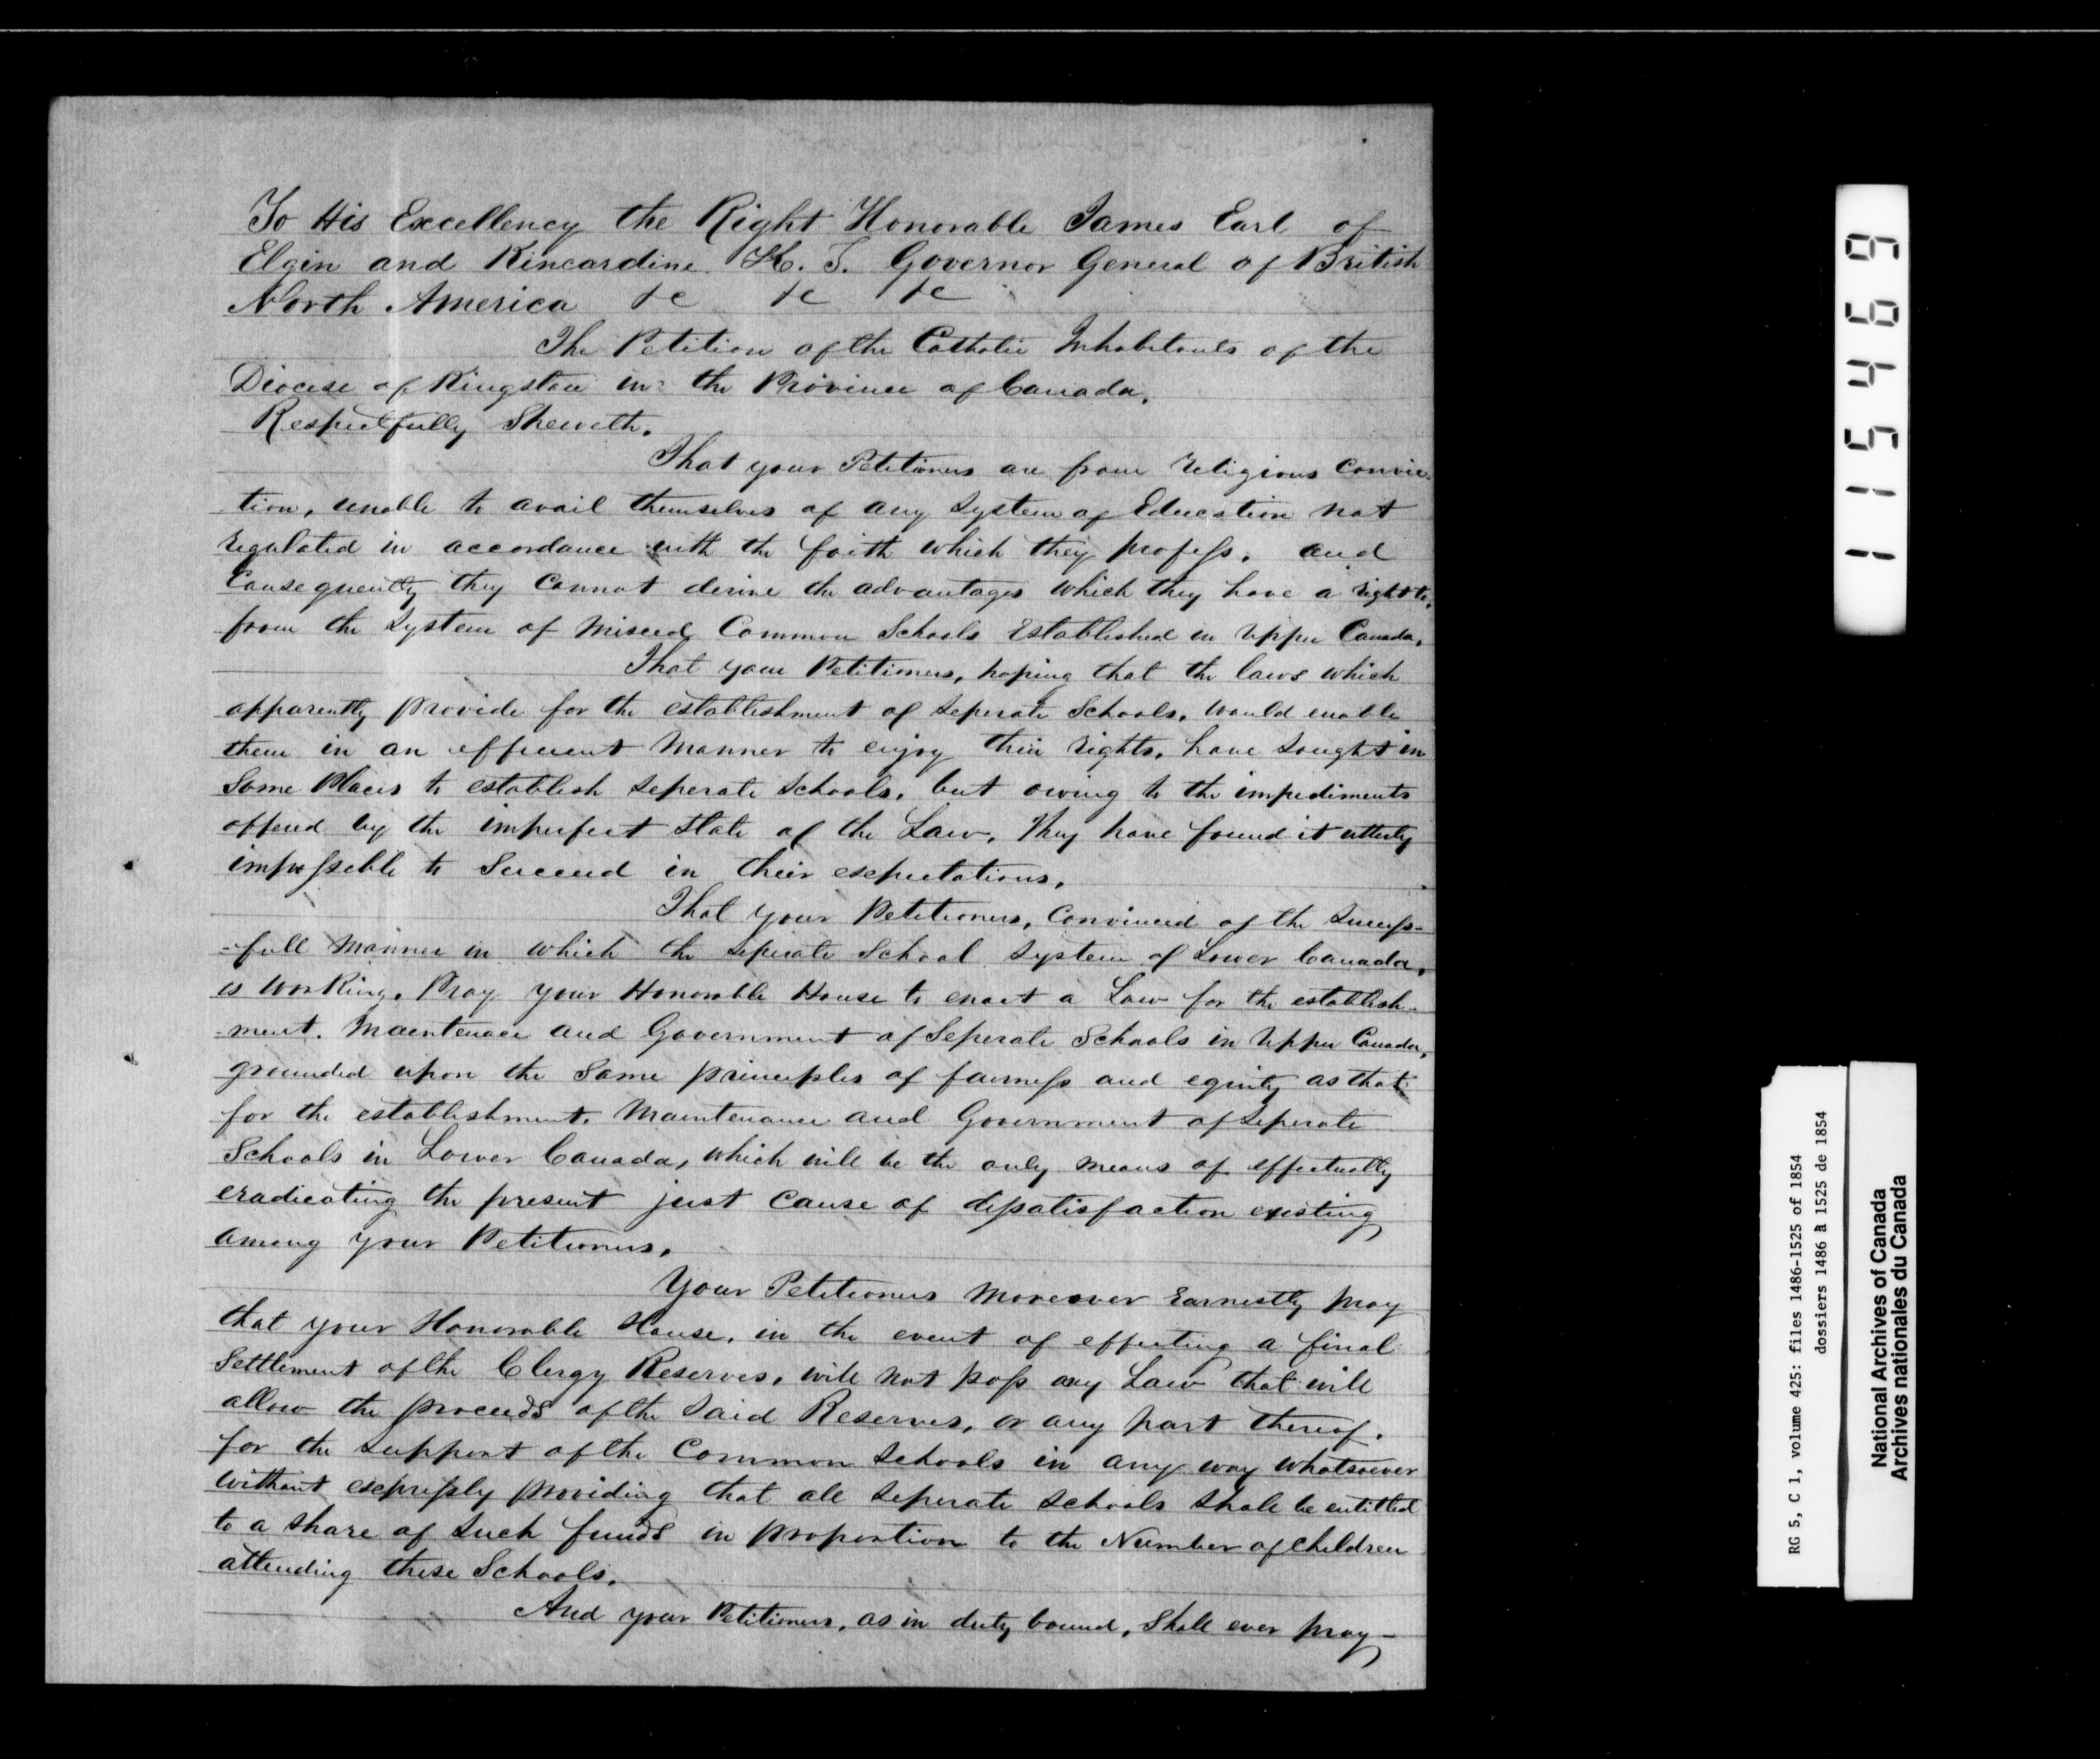 To His Excellency the Right Honorable James Earl of
Elgin and Kincardine K. T. Governor General of British
North America &c &c &c
The Petition of the Catholic Inhabitants of the
Diocese of Kingston in the Province of Canada.
Respectfully Sheweth.
That your Petitioners are from religious convic-
tion, unable to avail themselves of any System of Education not
regulated in accordance with the faith which they profess, and
Consequently they Cannot derive the advantages which they have a right to,
from the System of mixed Common Schools Established in Upper Canada.
That your Petitioners, hoping that the laws which
apparently provide for the establishment of Seperate Schools, would enable
them in an efficient Manner to enjoy their rights, have Sought in
Some Places to establish Seperate Schools, but owing to the impediments
offered by the imperfect State of the Law, They have found it utterly
impossible to Succeed in their expectations.
That your Petitioners, Convinced of the Success-
-full Manner in which the Seperate School System of Lower Canada,
is working, Pray your Honorable House to enact a Law for the establish-
-ment, Maintenace and Government of Seperate Schools in Upper Canada,
grounded upon the Same principles of fairness and equity as that
for the establishment, Maintenance and Government of Seperate
Schools in Lower Canada, which will be the only means of effectually
eradicating the present just Cause of dissatisfaction existing
among your Petitioners.
Your Petitioners Moreover Earnestly pray
that your Honorable House, in the event of effecting a final
Settlement of the Clergy Reserves, will not pass any Law that will
allow the proceeds of the Said Reserves, or any part thereof,
for the Support of the Common Schools in any way whatsoever
without expressly providing that all Seperate Schools Shall be entitled
to a Share of Such funds in proportion to the Number of Children
attending these Schools.
And your Petitioners, as in duty bound, Shall ever pray-
115469
RG 5, C 1, volume 425: files 1486-1525 of 1854
dossiers 1486 à 1525 de 1854
National Archives of Canada
Archives nationales du Canada